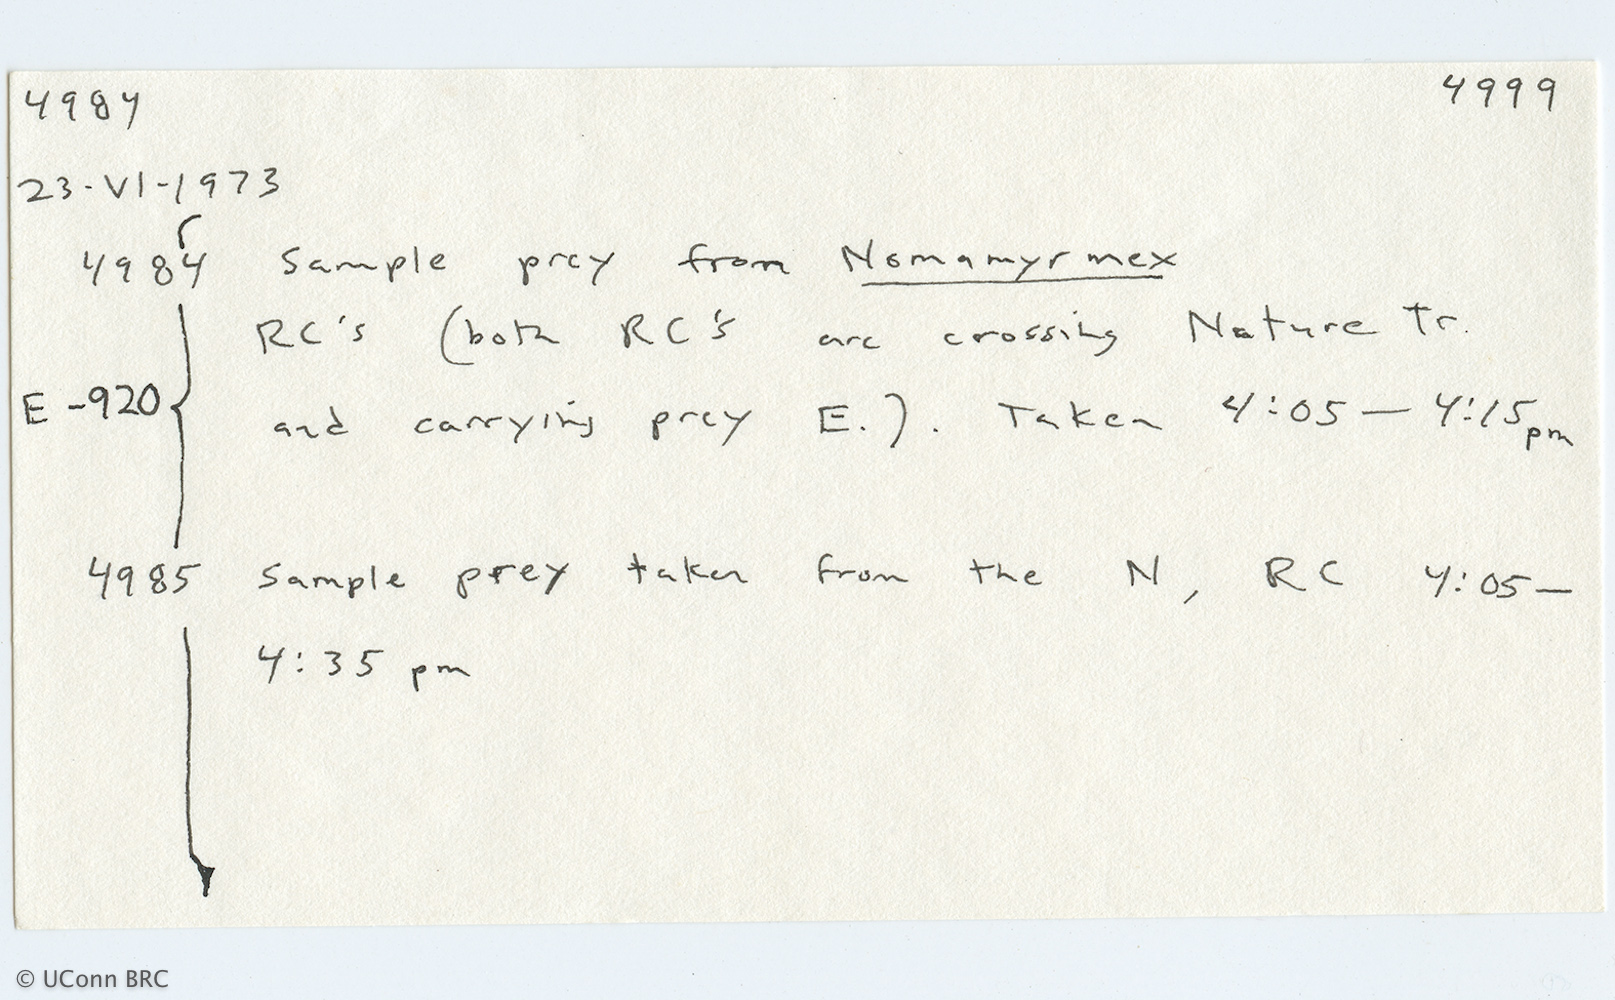 4984 4999
23-VI-1973
4984 Sample prey from Nomamyrmex
RC's (both RC's are crossing Nature Tr.
E-920 and carrying prey E.). Taken 4:05 — 4:15 pm
4985 Sample prey taken from the N, RC 4:05 —
4:35 pm
© UConn BRC